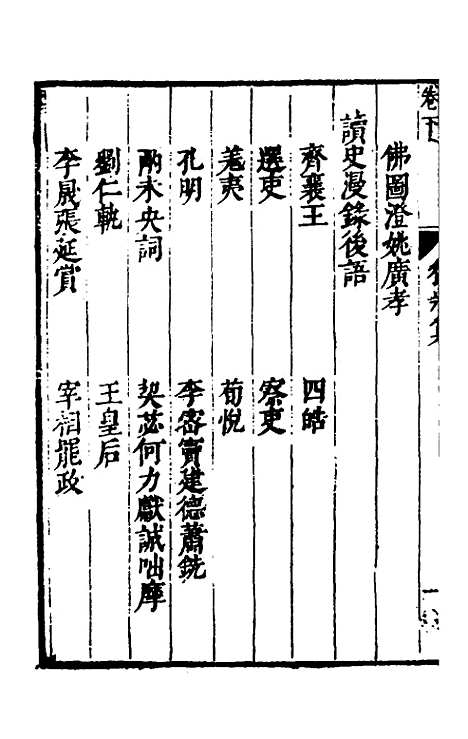 卷下
佛圖澄姚廣孝
讀史漫錄後語
齊襄王　四皓
選吏　察吏
羗夷　荀悅
孔明　李密竇建德蕭銑
兩未央詞　契苾何力獻誠咄摩
劉仁軌　王皇后
李晟張延賞　宰相罷政